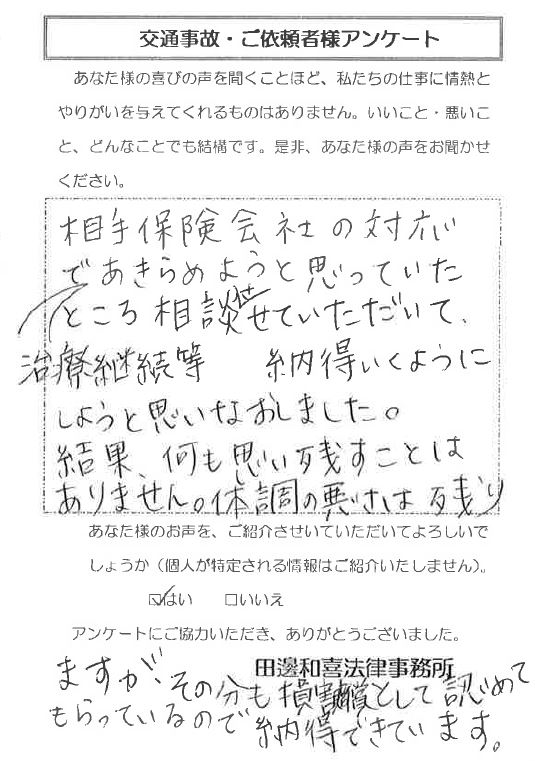 交通事故・ご依頼者様アンケート
あなた様の喜びの声を聞くことほど、私たちの仕事に情熱と
やりがいを与えてくれるものはありません。いいこと・悪いこ
と、どんなことでも結構です。是非、あなた様の声をお聞かせ
ください。
相手保険会社の対応
であきらめようと思っていた
ところ相談させていただいて、
治療継続等 納得いくように
しようと思いなおしました。
結果、何も思い残すことは
ありません。体調の悪さは残り
あなた様のお声を、ご紹介させいていただいてよろしいで
しょうか（個人が特定される情報はご紹介いたしません）。
☑はい □いいえ
アンケートにご協力いただき、ありがとうございました。
田邊和喜法律事務所
ますが、その分も損害賠償として認めて
もらっているので納得できています。